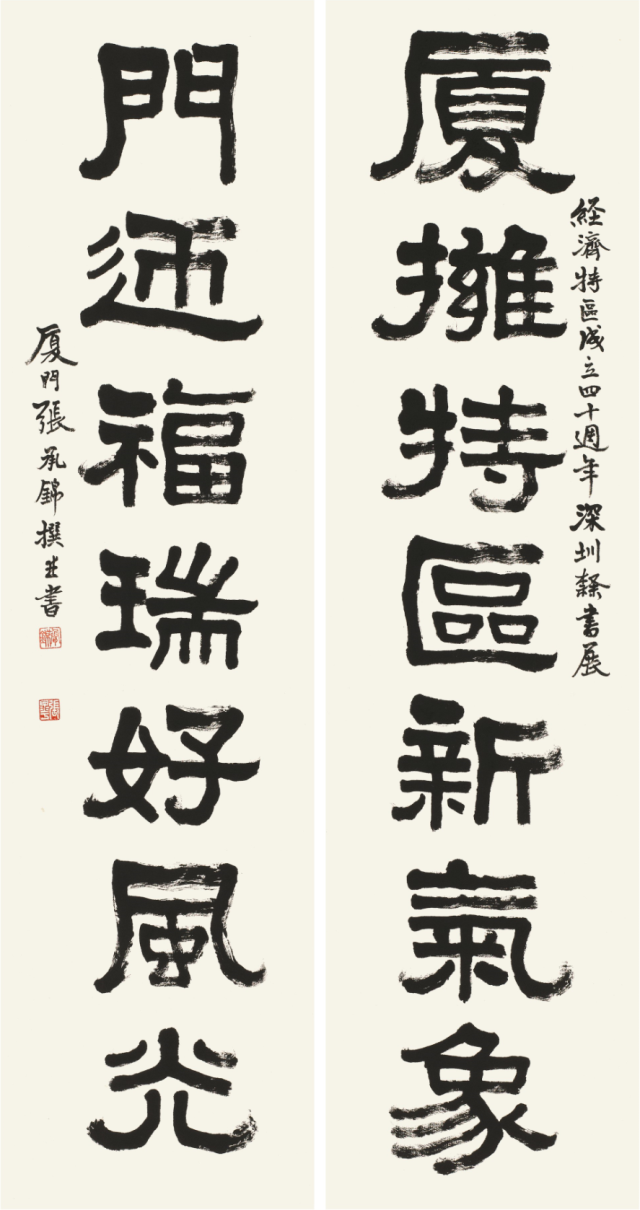 經濟特區成立四十週年深圳隸書展
厦擁特區新氣象
門迎福瑞好風光
厦門張承錦撰並書